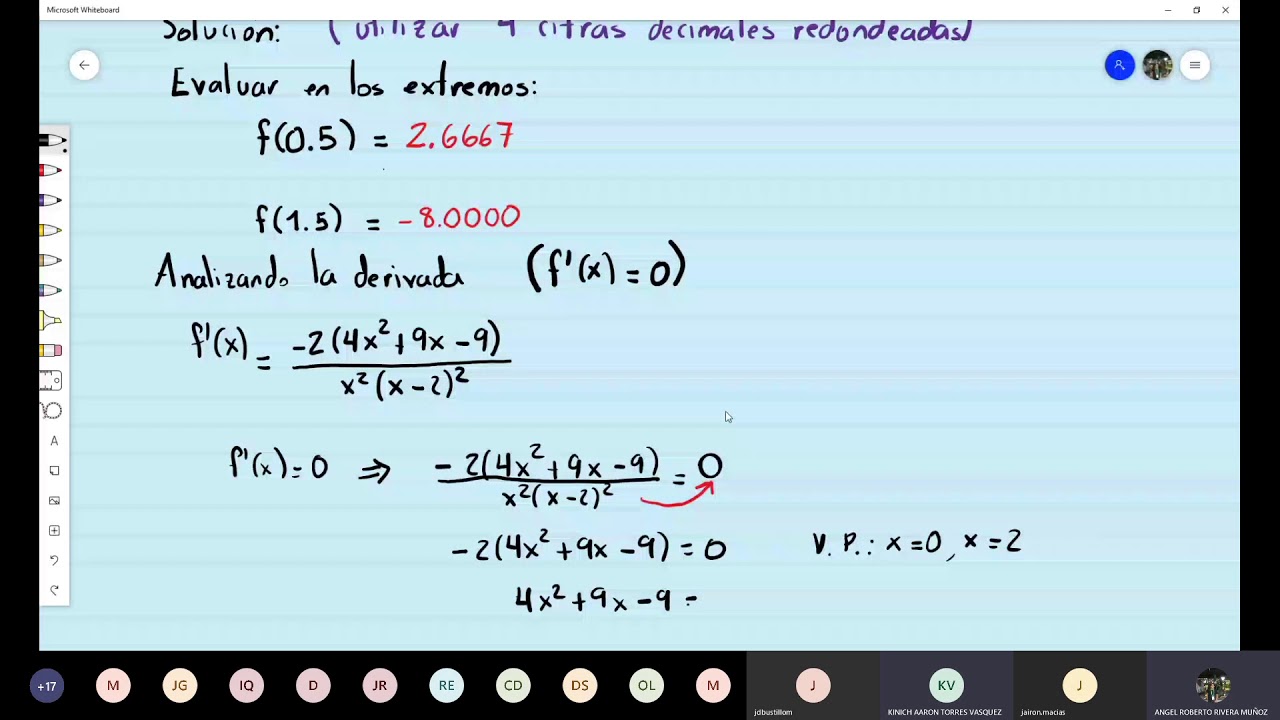 Microsoft Whiteboard
Solución: (utilizar 4 cifras decimales redondeadas)
Evaluar en los extremos:
f(0.5) = 2.6667
f(1.5) = -8.0000
Analizando la derivada (f'(x) = 0)
f'(x) = -2(4x²+9x-9)
x²(x-2)²
f'(x)=0 ⇒ -2(4x²+9x-9) = 0
x²(x-2)²
-2(4x²+9x-9) = 0 V. P.: x=0, x=2
4x²+9x-9 =
A
+17 M JG IQ D JR RE CD DS OL M J KV J
jdbustillom KINICH AARON TORRES VASQUEZ jairon.macias ANGEL ROBERTO RIVERA MUÑOZ